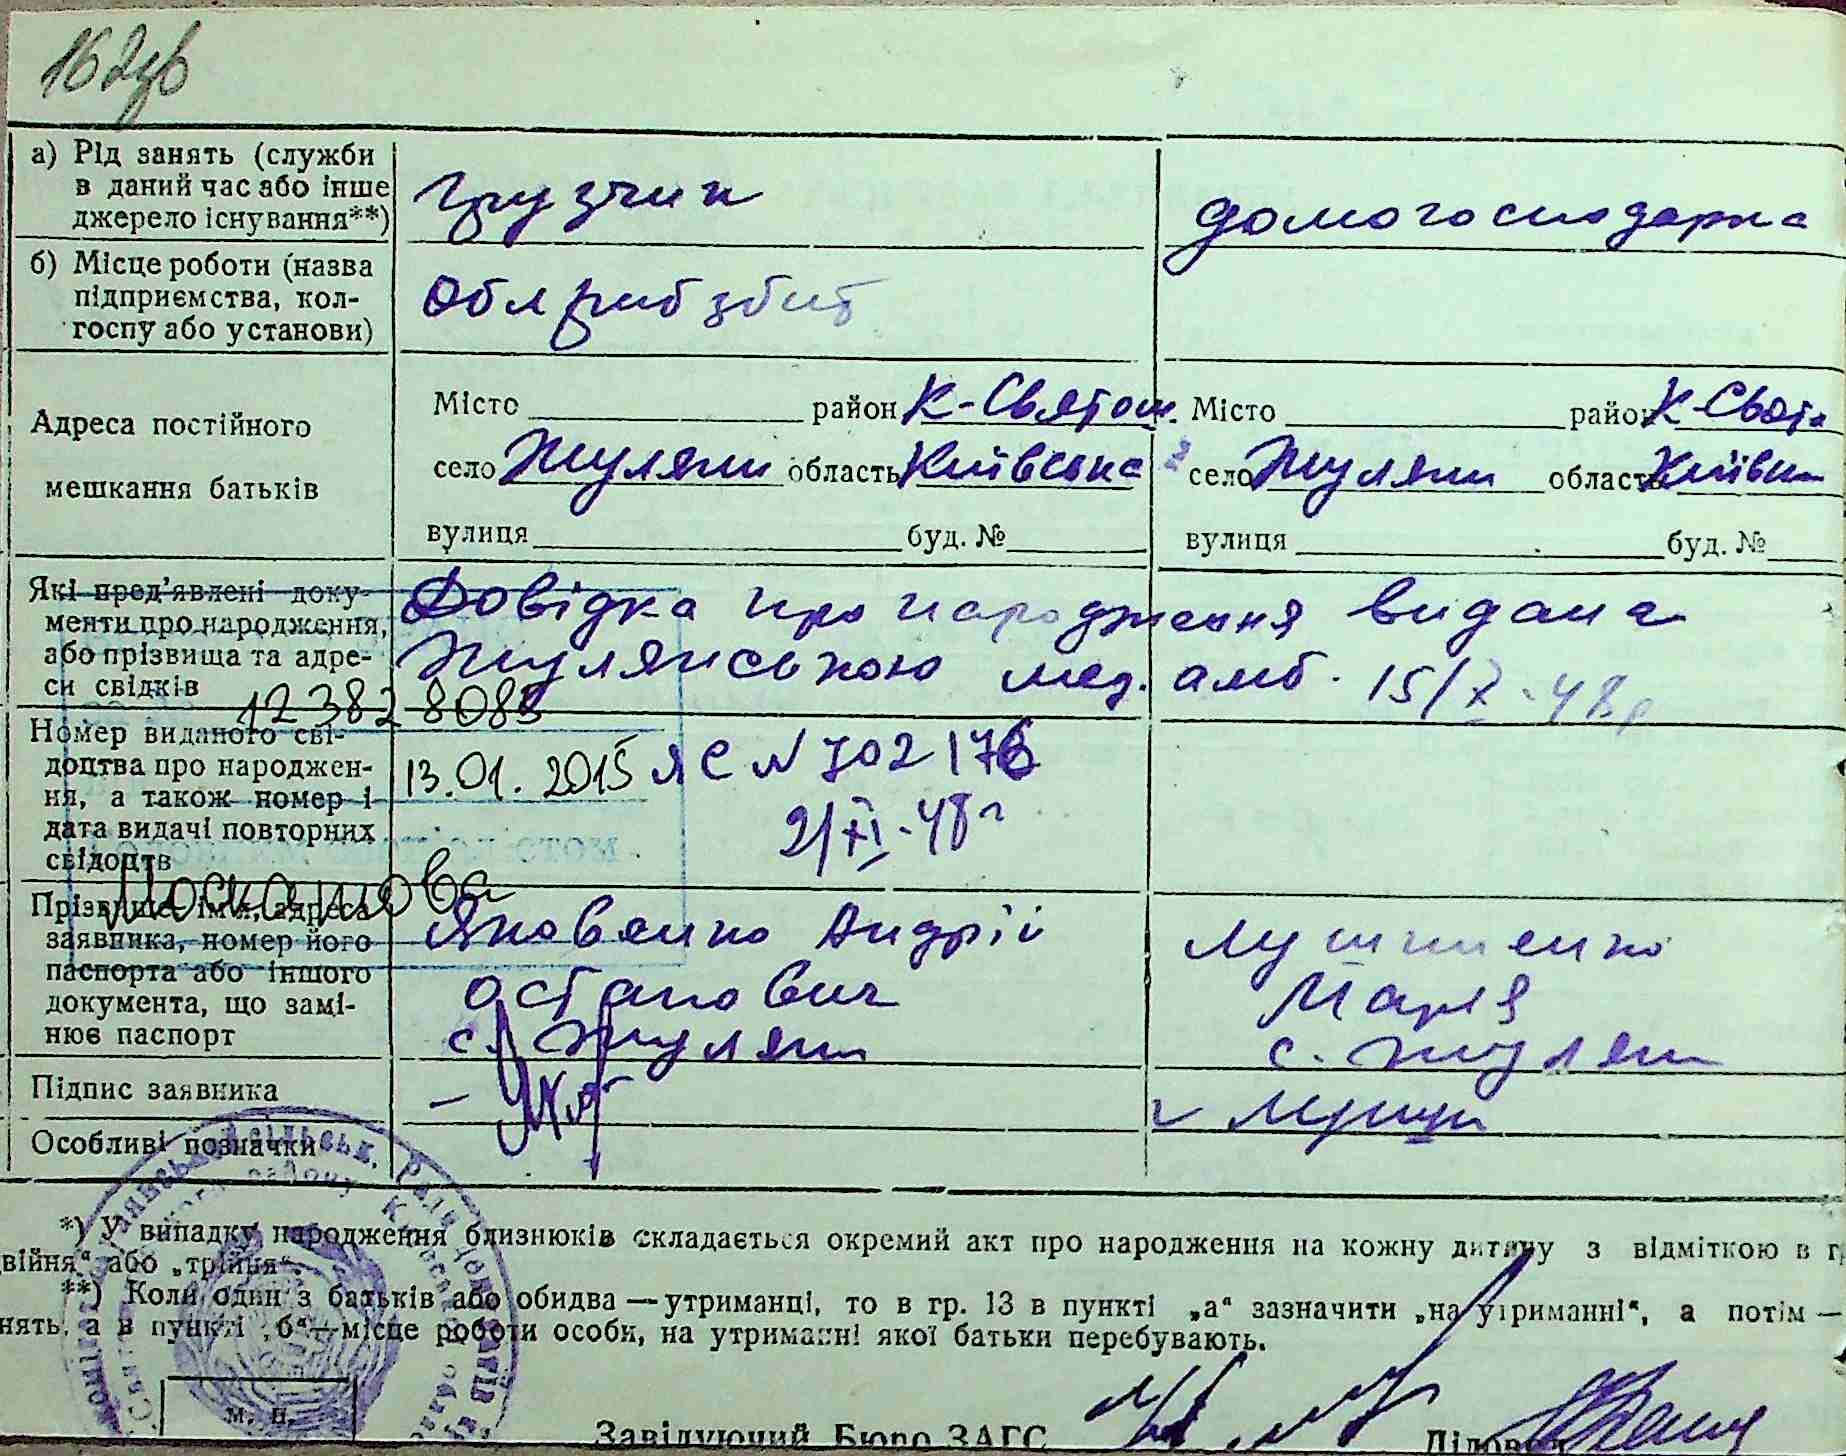 а) Рід занять (служби в даний час або інше джерело існування**)
грузчик
домогосподарка
б) Місце роботи (назва підприємства, колгоспу або установи)
Облрибзбит
Адреса постійного мешкання батьків
Місто район К-Святош.
село Жуляни область Київська
вулиця буд. №
Місто район К-Свято
село Жуляни область Київськ
вулиця буд. №
Які пред'явлені документи про народження, або прізвища та адреси свідків
Довідка про народження видана
Жулянською мед. амб. 15/X-48р
12382 8085
Номер виданого свідоцтва про народження, а також номер і дата видачі повторних свідоцтв
13.01.2015 ЯС N 702176
2/XI-48г
Прізвище, ім'я, адреса заявника, номер його паспорта або іншого документа, що замінює паспорт
Яковенко Андрій
Остапович
с. Жуляни
Марія
с. Жуляни
Підпис заявника
Особливі позначки
*) У випадку народження близнюків складається окремий акт про народження на кожну дитину з відміткою в г
війня" або „трійня".
**) Коли один з батьків або обидва — утриманці, то в гр. 13 в пункті „а" зазначити „на утриманні", а потім —
нять, а в пункті „б" — місце роботи особи, на утриманні якої батьки перебувають.
м. п.
Завідуючий Бюро ЗАГС
Діловод